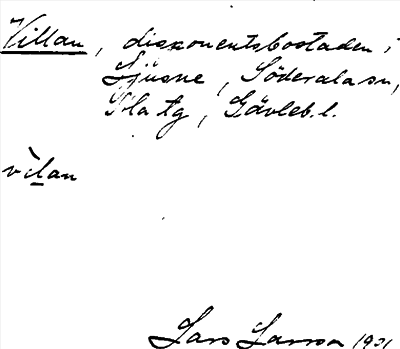 Villan, disponentsbostaden i
Ljusne, Söderala sn,
Ala tg, Gävleb. l.
vìlan
Lars Larsson 1931